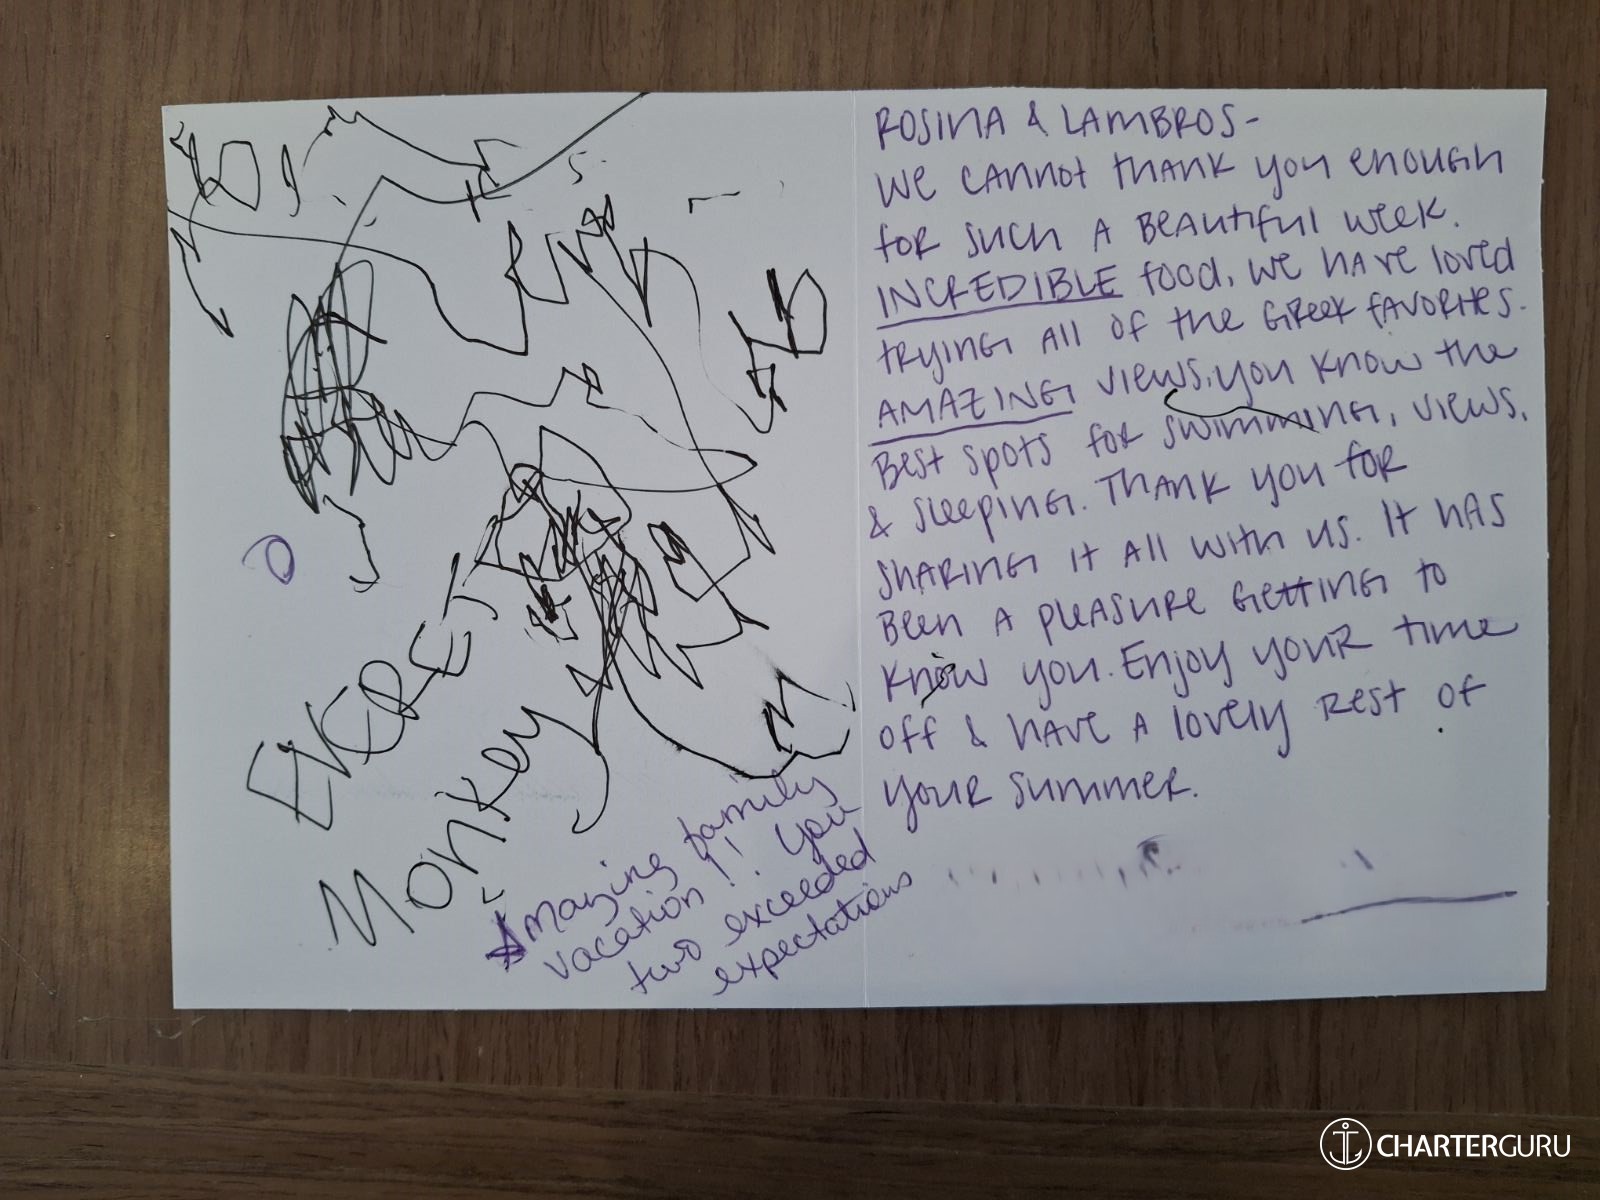 EVERET
Monkey
Amazing family
vacation!! You
two exceeded
expectations
ROSINA & LAMBROS-
WE CANNOT THANK YOU ENOUGH
FOR SUCH A BEAUTIFUL WEEK.
INCREDIBLE FOOD, WE HAVE LOVED
TRYING ALL OF THE GREEK FAVORITES.
AMAZING VIEWS. YOU KNOW THE
BEST SPOTS FOR SWIMMING, VIEWS,
& SLEEPING. THANK YOU FOR
SHARING IT ALL WITH US. IT HAS
BEEN A PLEASURE GETTING TO
KNOW YOU. ENJOY YOUR TIME
OFF & HAVE A LOVELY REST OF
YOUR SUMMER.
CHARTERGURU